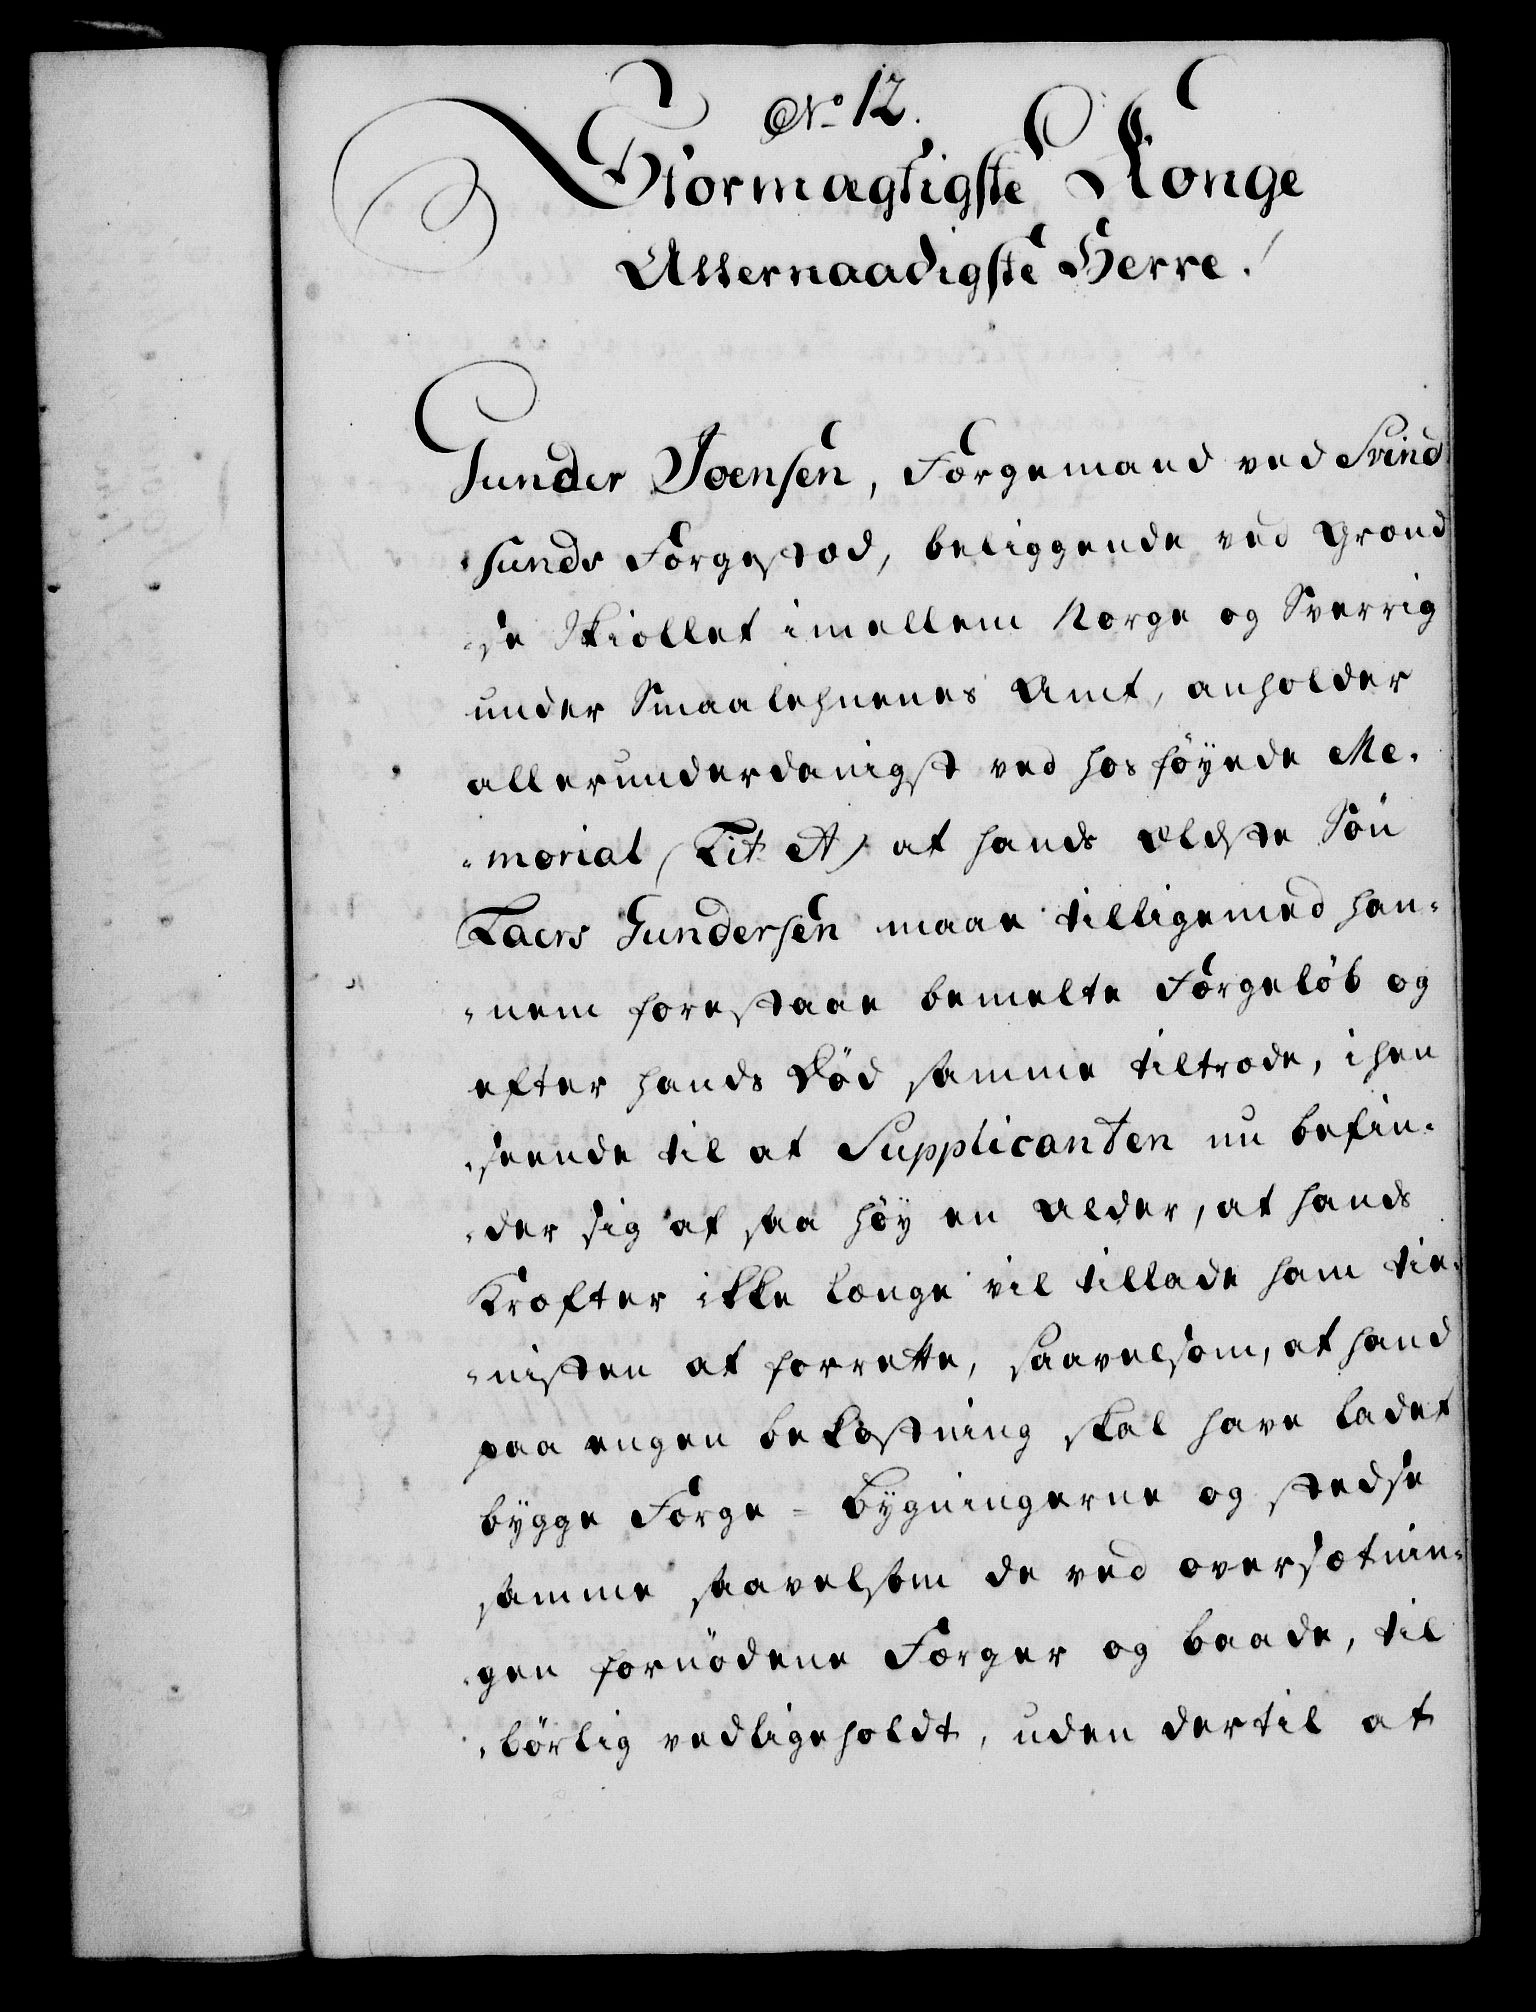 No 12.
Stormægtigste Konge
Allernaadigste Herre!
Gunder Joensen, Færgemand ved Svind
sunds Færgestæd, beliggende ved Grænd
„se Skiællet imellem Norge og Sverrig
under Smaalehnenes Amt, anholder
allerunderdanigst ved hosføyede Me„
„morial (Lit. A) at hands Eldste Søn
Laers Gundersen maae tilligemed han„
„nem forestaae bemelte Færgeløb og
efter hands Død samme tiltræde, i hen
„seende til at Supplicanten nu befin„
„der sig af saa høy en Alder, at hands
Kræfter ikke længe vil tillade ham tie„
„nisten at forrette, saavelsom, at hand
paa engen bekostning skal have ladet
bygge Færge-Bygningerne og stedse
samme saavelsom de ved oversætnin„
„gen fornødene Færger og baade, til
„børlig vedligeholdt, uden dertil at